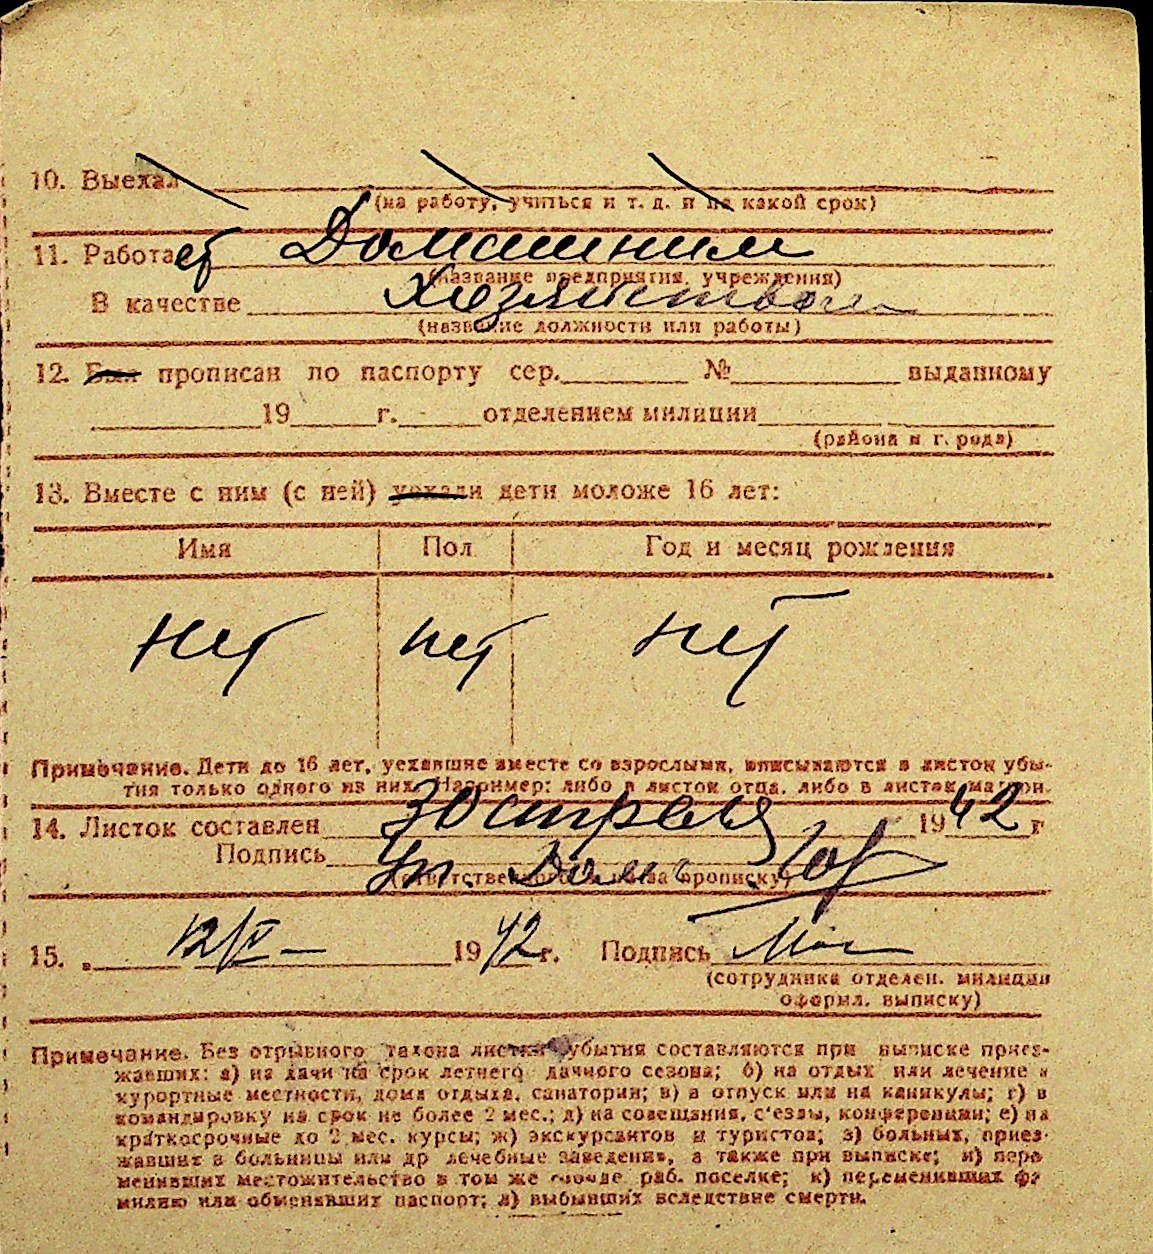 10. Выехал
(на работу, учиться и т. д. и на какой срок)
11. Работает Домашним
(название предприятия, учреждения)
В качестве Хозяйством
(название должности или работы)
12. Был прописан по паспорту сер. № выданному
19 г. отделением милиции
(района и г. рода)
13. Вместе с ним (с ней) уехали дети моложе 16 лет:
Имя Пол Год и месяц рождения
нет нет нет
Примечание. Дети до 16 лет, уехавшие вместе со взрослыми, вписываются в листок убы-
тия только одного из них. Например: либо в листок отца, либо в листок матери.
14. Листок составлен 30 апреля 1942 г
Подпись Уп. Дом.
(ответственного за прописку)
15. 12/V 1942 г. Подпись
(сотрудника отделен. милиции
оформл. выписку)
Примечание. Без отрывного талона листки убытия составляются при выписке приез-
жавших: а) на дачи на срок летнего дачного сезона; б) на отдых или лечение в
курортные местности, дома отдыха, санатории; в) в отпуск или на каникулы; г) в
командировку на срок не более 2 мес.; д) на совещания, с'езды, конференции; е) на
краткосрочные до 2 мес. курсы; ж) экскурсантов и туристов; з) больных, приез-
жавших в больницы или др лечебные заведения, а также при выписке; и) пере
менивших местожительство в том же городе раб. поселке; к) переменивших фа
милию или обменявших паспорт; л) выбывших вследствие смерти.